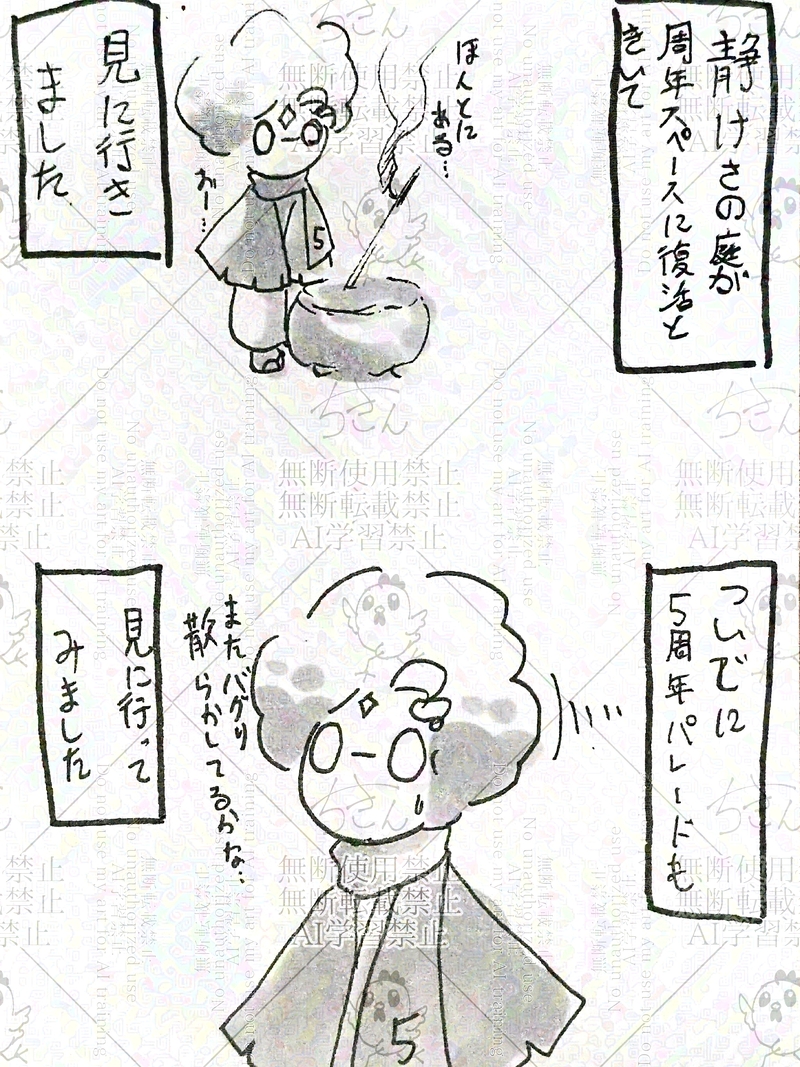 静けさの庭が
周年スペースに復活と
きいて
ほんとに
ある…
おー…
5
見に行き
ました
ついでに
5周年パレードも
またバグり
散らかしてるかな…
5
見に行って
みました
ちさん
無断使用禁止
無断転載禁止
AI学習禁止
No unauthorized use
Do not use my art for AI training